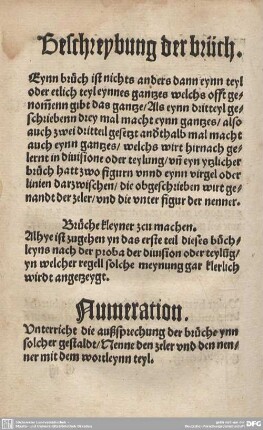 Beschreybung der brüch.
Eynn brüch ist nichts anders dann eynn teyl
oder etlich teyl eynnes gantzes welchs offt ge-
nom̄enn gibt das gantze/ Als eynn dritteyl ge-
schriebenn drey mal macht eynn gantzes/ also
auch zwei dritteil gesetzt andthalb mal macht
auch eynn gantzes/ welchs wirt hirnach ge-
lernt in divisione oder teylung/ vnd̄ eyn ytzlicher
brüch hatt zwo figurn vnnd eynn virgel oder
linien darzwischen/ die obgeschrieben wirt ge-
nandt der zeler/ vnd die vnter figur der nenner.
Brüche kleyner zcu machen.
Alhye ist zugehen yn das erste teil dieses büch-
leyns nach der proba der diuision oder teylūg/
yn welcher regell solche meynung gar klerlich
wirdt angetzeygt.
Numeration.
Vnterricht die außsprechung der brüche ynn
solcher gestaldt/ Nenne den zeler vnd den nen-
ner mit dem wortleynn teyl.